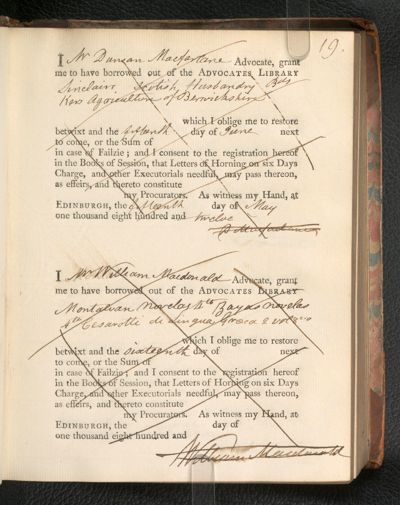 19.
I Mr Duncan Macfarlane Advocate, grant
me to have borrowed out of the ADVOCATES LIBRARY
Sinclairs Scotish Husbandry
Kers Agriculture of Berwickshire
which I oblige me to restore
betwixt and the fifteenth day of June next
to come, or the Sum of
in case of Failzie; and I consent to the registration hereof
in the Books of Session, that Letters of Horning on six Days
Charge, and other Executorials needful, may pass thereon,
as effeirs, and thereto constitute
my Procurators. As witness my Hand, at
EDINBURGH, the fifteenth day of May
one thousand eight hundred and twelve
D Macfarlane
I Mr William Macdonald Advocate, grant
me to have borrowed out of the ADVOCATES LIBRARY
Montalvan Novelas 4to Zayas novelas
4to Cesarotti de Lingua Graeca
which I oblige me to restore
betwixt and the sixteenth day of next
to come, or the Sum of
in case of Failzie; and I consent to the registration hereof
in the Books of Session, that Letters of Horning on six Days
Charge, and other Executorials needful, may pass thereon,
as effeirs, and thereto constitute
my Procurators. As witness my Hand, at
EDINBURGH, the day of
one thousand eight hundred and
William Macdonald